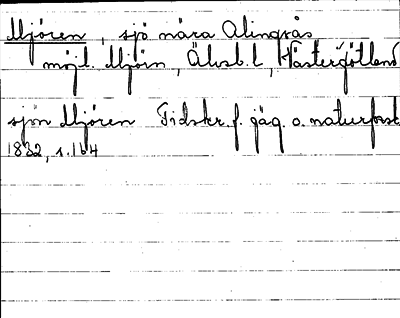 Mjören, sjö nära Alingsås
möjl. Mjörn, Älvsb. l, Västergötland
sjön Mjören Tidskr. f. jäg. o. naturforsk
1832, s. 164